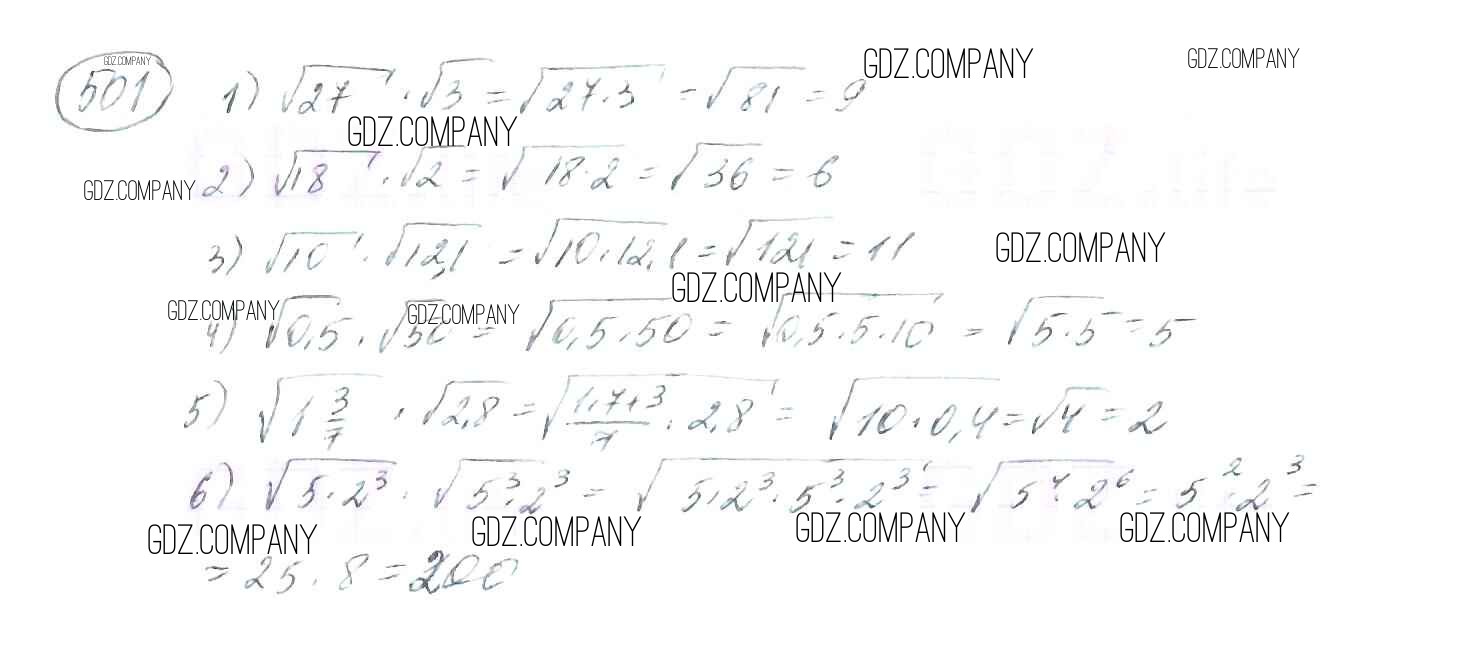 GDZ.COMPANY GDZ.COMPANY GDZ.COMPANY
501 1) √27 · √3 = √27·3 = √81 = 9
GDZ.COMPANY
GDZ.COMPANY 2) √18 · √2 = √18·2 = √36 = 6
3) √10 · √12,1 = √10·12,1 = √121 = 11 GDZ.COMPANY
GDZ.COMPANY
GDZ.COMPANY GDZ.COMPANY
4) √0,5 · √50 = √0,5·50 = √0,5·5·10 = √5·5 = 5
5) √1 3/7 · √2,8 = √(1·7+3)/7 · 2,8 = √10·0,4 = √4 = 2
6) √5·2³ · √5³·2³ = √5·2³·5³·2³ = √5⁴·2⁶ = 5²·2³ =
GDZ.COMPANY GDZ.COMPANY GDZ.COMPANY GDZ.COMPANY
= 25 · 8 = 200